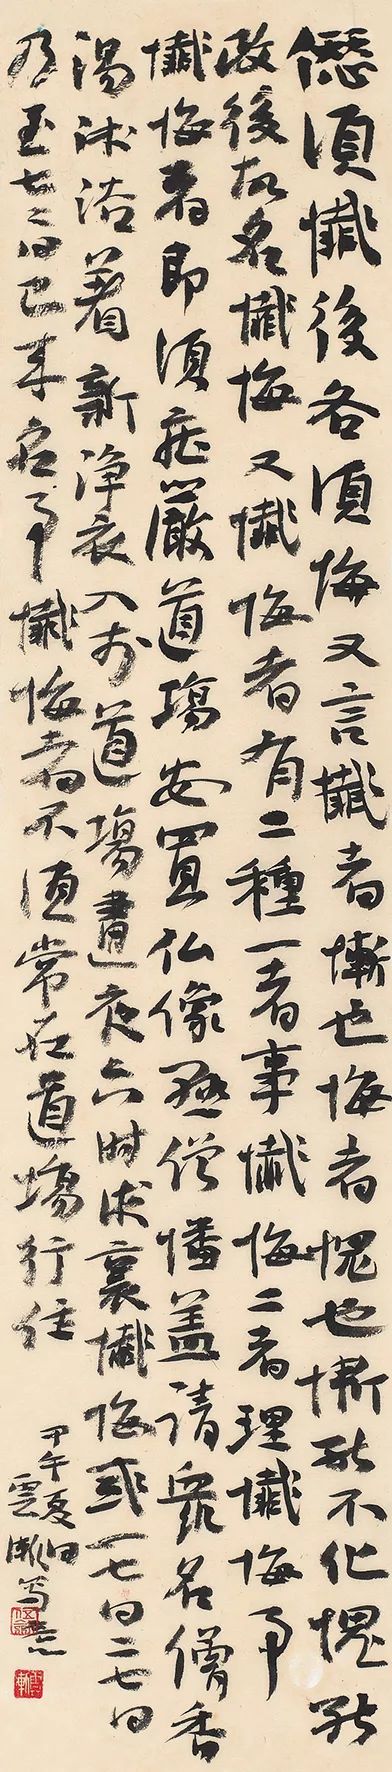 僁須懺後各須悔又言懺者慚也悔者愧也慚能不作愧能
改後故名懺悔又懺悔者有二種一者事懺悔二者理懺悔事
懺悔者即須庄嚴道場安置仏像懸繒幡盖請衆名僧香
湯沐浴著新淨衣入於道場晝夜六時求哀懺悔或一七日二七日
乃至七々日已来名事懺悔者不須常在道場行住
甲午夏日
雲